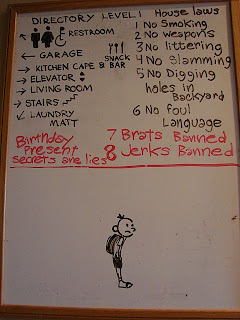 DIRECTORY LEVEL 1
RESTROOM
← GARAGE
SNACK
→ KITCHEN CAFE & BAR
→ ELEVATOR
→ LIVING ROOM
→ STAIRS
↙ LAUNDRY
MATT
Birthday
Present
secrets are lies
House laws
1 No Smoking
2 No weapons
3 No littering
4 No Slamming
5 No Digging
holes in
Backyard
6 No foul
Language
7 Brats Banned
8 Jerks Banned